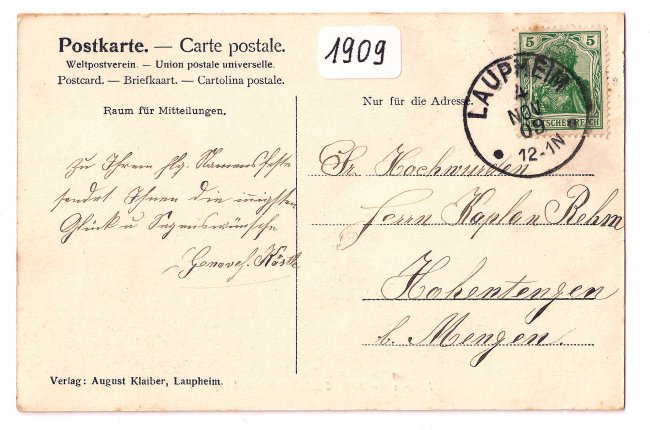 Postkarte. — Carte postale.
Weltpostverein. — Union postale universelle.
Postcard. — Briefkaart. — Cartolina postale.
1909
Raum für Mitteilungen.
Nur für die Adresse.
5 5
DEUTSCHES REICH
LAUPHEIM
4
NOV
09
12-1N
Zu Ihrem hlg. Namensfeste
sendet Ihnen die innigsten
Glück u Segenswünsche
Genovef. Köstle
Sr. Hochwürden
Herrn Kaplan Rehm
Hohentengen
b. Mengen.
Verlag: August Klaiber, Laupheim.